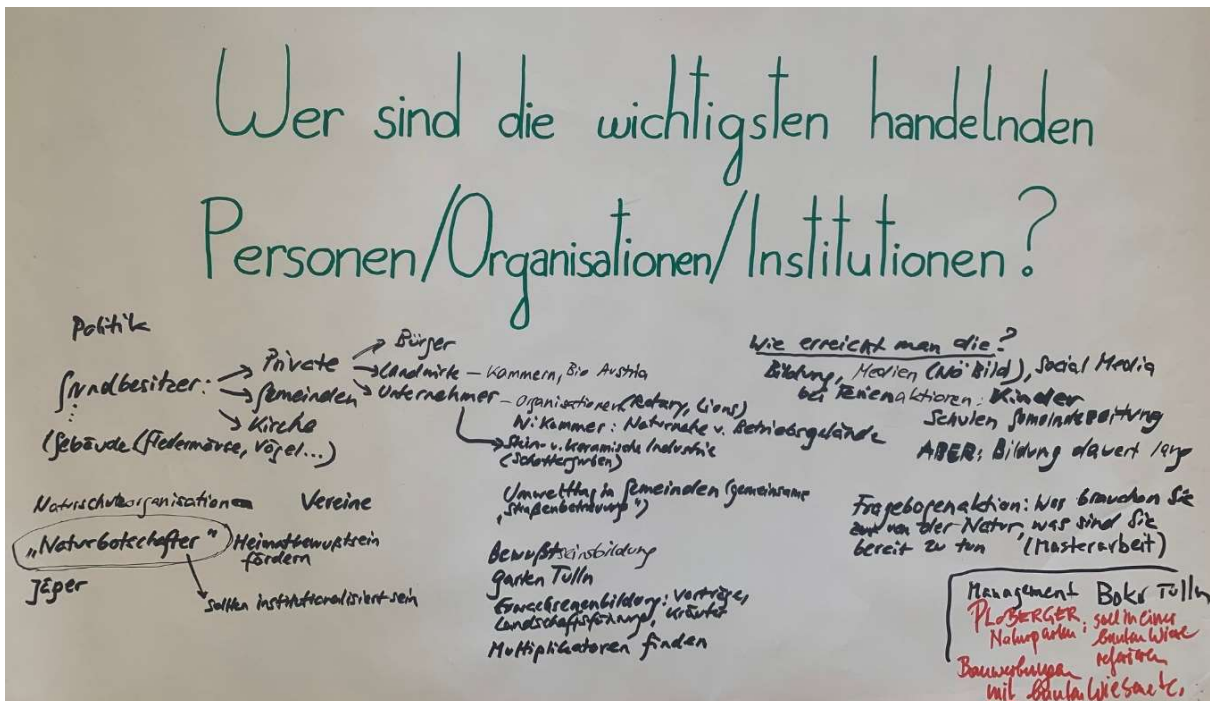 Wer sind die wichtigsten handelnden
Personen/Organisationen/Institutionen?
Politik
Grundbesitzer:
(Gebäude (Fledermäuse, Vögel...)
Private
Gemeinden
Kirche
Bürger
Landwirte – Kammern, Bio Austria
Unternehmer – Organisationen (Rotary, Lions)
Wi. Kammer: Naturnahe v. Betriebsgelände
Stein- u. keramische Industrie
(Schottergruben)
Umwelttag in Gemeinden (gemeinsame
"Straßenbetreuung")
Naturschutzorganisationen
Vereine
„Naturbotschafter"
Heimatbewußtsein
fördern
sollten institutionalisiert sein
Jäger
Bewußtseinsbildung
Garten Tulln
Erwachsenenbildung: Vorträge,
Landschaftsführung, Kräuter
Multiplikatoren finden
Wie erreicht man die?
Bildung, Medien (NÖ Bild), Social Media
bei Ferienaktionen: Kinder
Schulen Gemeindezeitung
ABER: Bildung dauert lang
Fragebogenaktion: Was brauchen Sie
von der Natur, was sind Sie
bereit zu tun (Masterarbeit)
Management Boku Tulln
PLOBERGER: soll in einer
Naturgarten bunten Wiese
referieren
Bauwerbungen
mit bunten Wiesen etc.